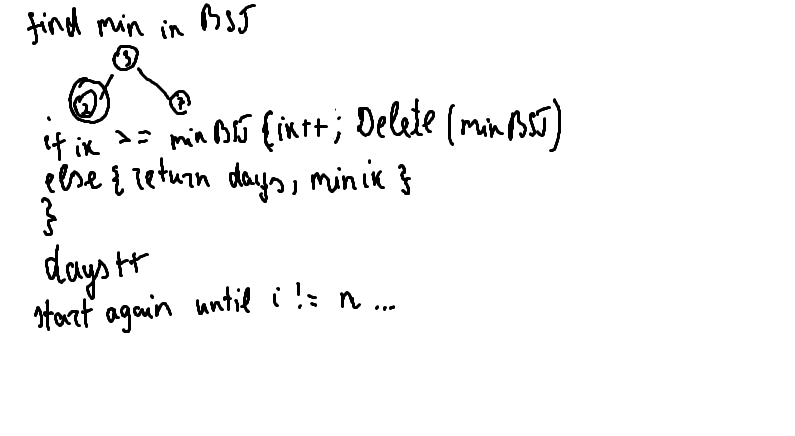 find min in BST
3
2 7
if ix >= minBST {ix++; Delete (minBST)
else { return days, minix }
}
days++
start again until i != n ...